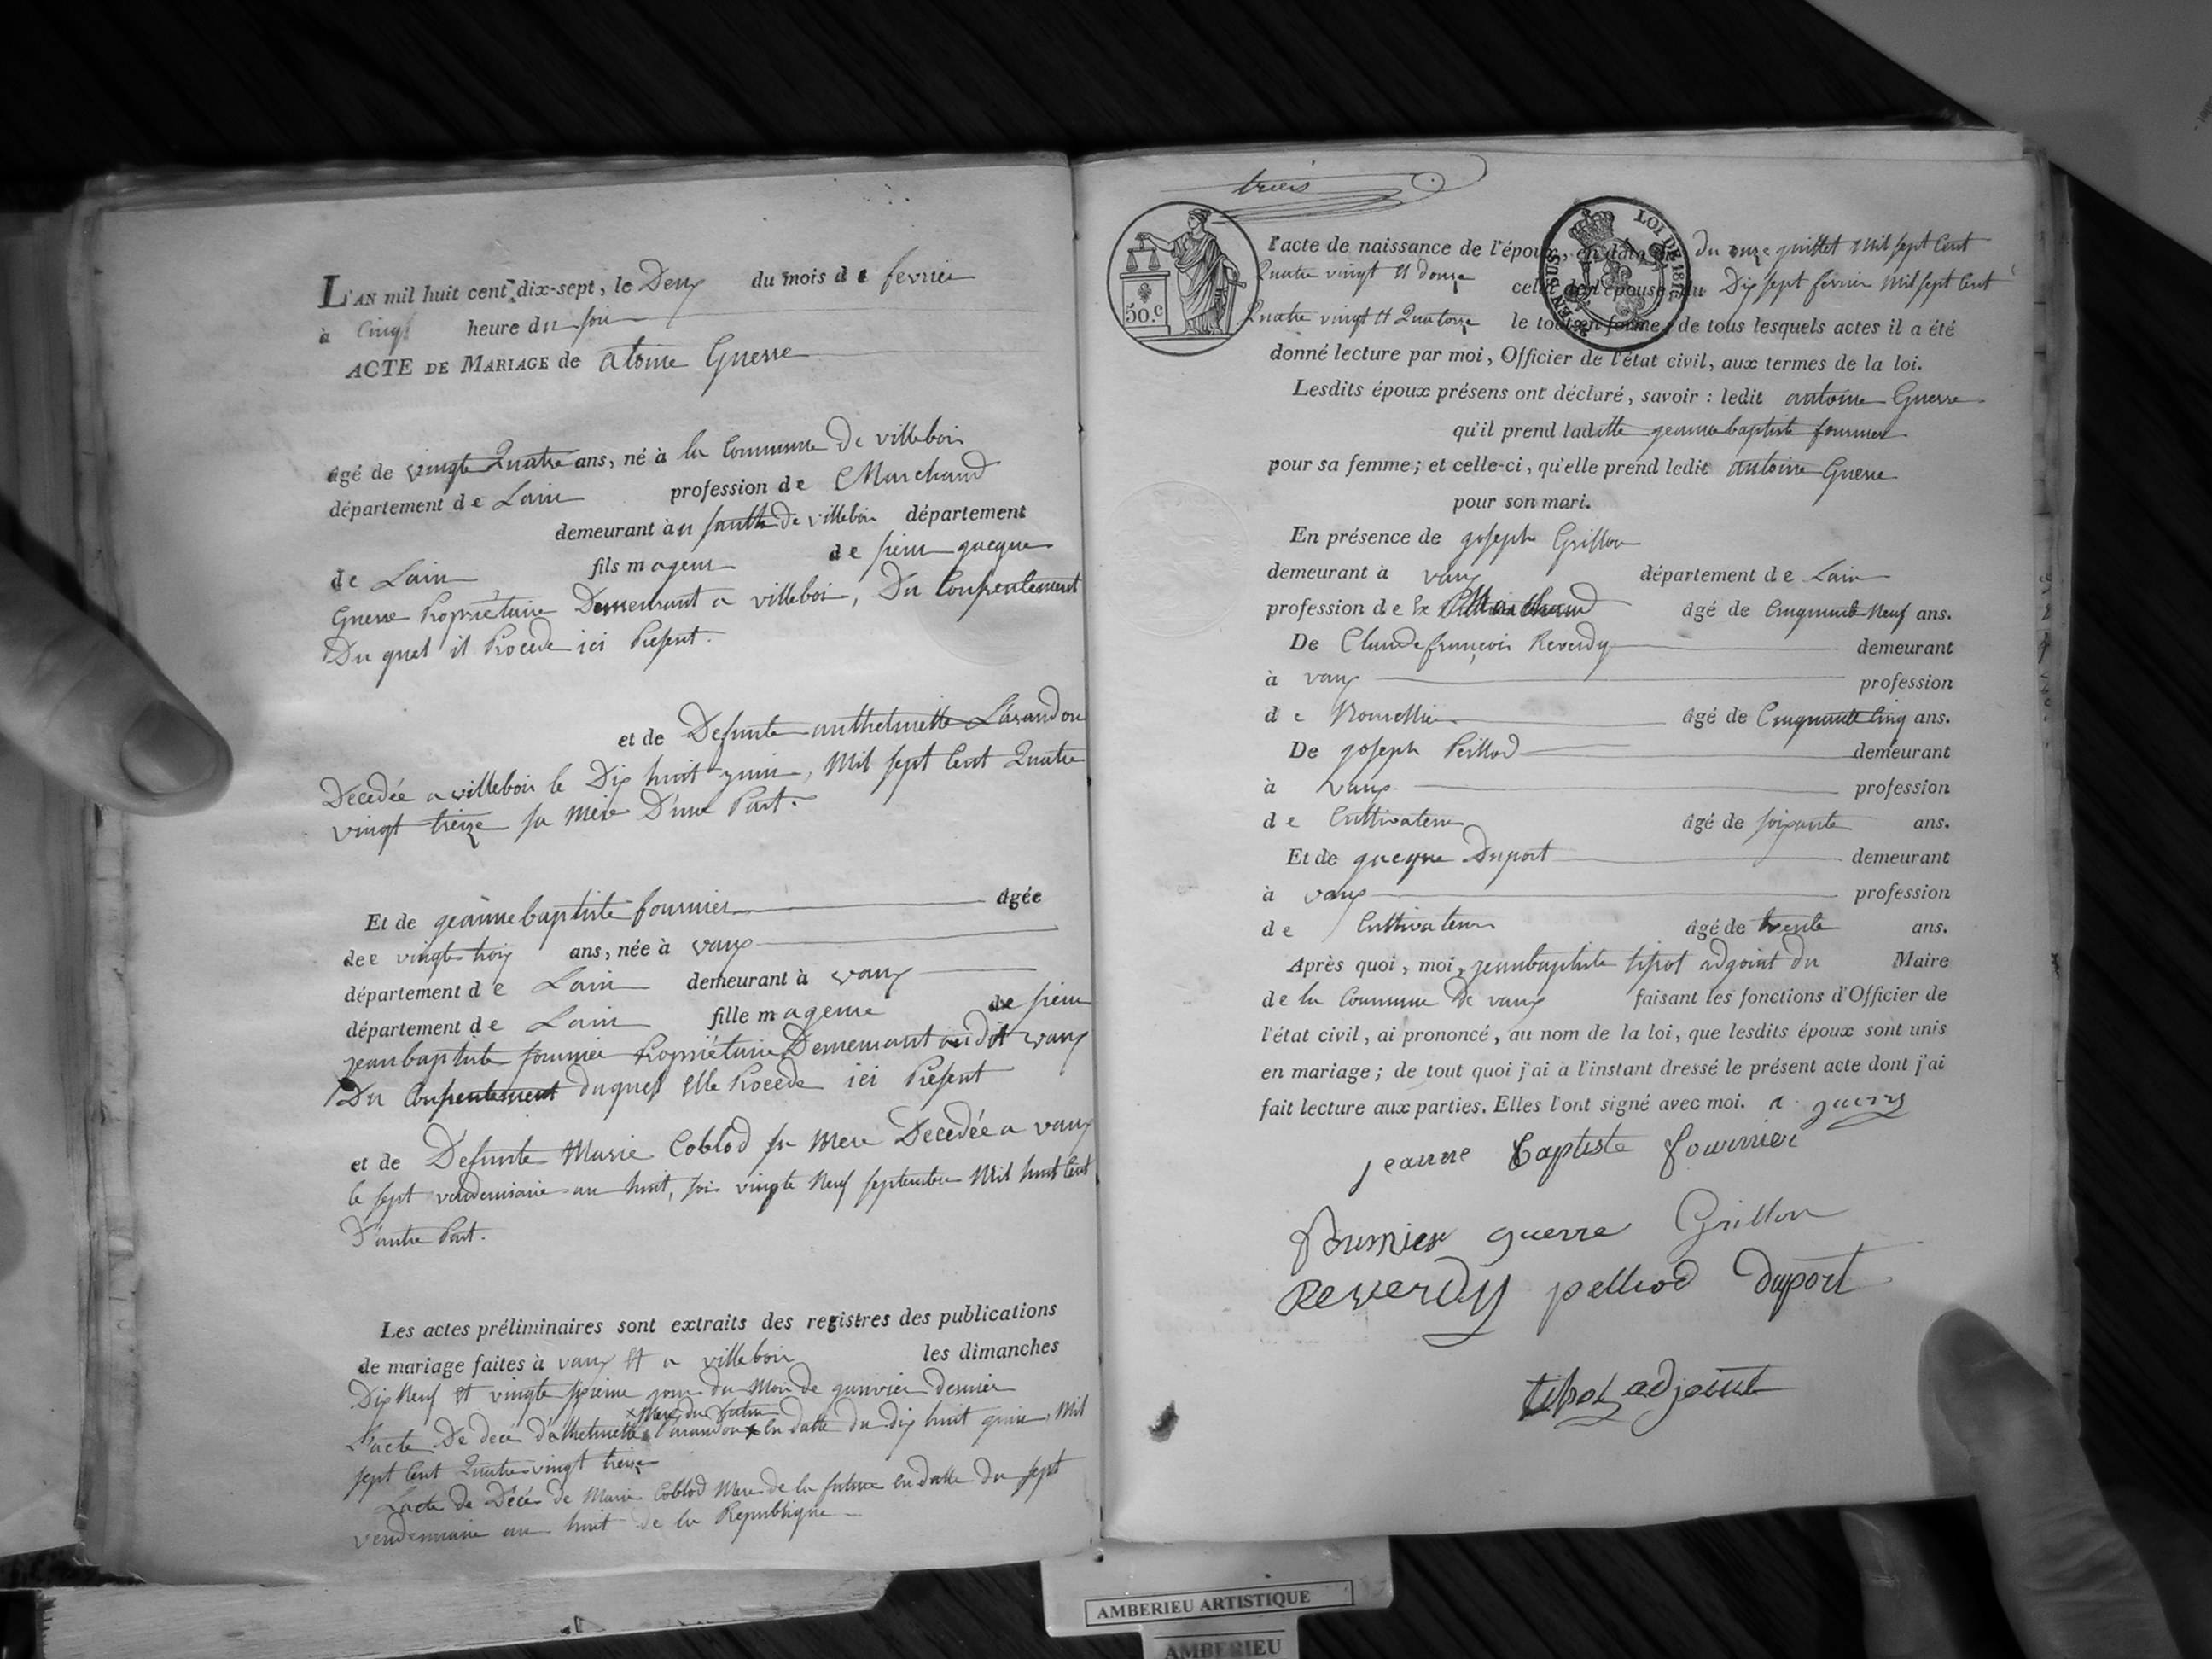 L'AN mil huit cent dix-sept, le Deux du mois de fevrier
à Cinq heure du soir
ACTE DE MARIAGE de atoine Guerre
âgé de vingte Quatre ans, né à la Commune De villebois
département de Lain profession de Marchand
demeurant à De villebois département
de Lain fils mageur de pierre gacque
Guerre Propriétaire Demeurant a villebois, Du Consentement
Du quel il Procede ici Présent.
et de Defunte anthelmette Larandon
Decedée a villebois le Dix huit juin, Mil sept Cent Quatre
vingt treize sa Mère D'une Part.
Et de geanne baptiste fournier âgée
dee vingte trois ans, née à vaux
département de Lain demeurant à vaux
département de Lain fille mageure de pierre
jean baptiste fournier Propriétaire Demeurant audit vaux
Du Consentement duquel Elle Procede ici Présent
et de Defunte Marie Coblod sa Mere Decedée a vaux
le sept vendemiaire an huit, vingte Neuf septembre Mil huit Cent
D'autre Part.
Les actes préliminaires sont extraits des registres des publications
de mariage faites à vaux Et a villebois les dimanches
Dix Neuf Et vingte sixieme jour du Mois de ganvier dernier
x Mere du futur
L'acte De decé Larandon x En datte du dix huit juin, Mil
sept Cent Quatre vingt treize
Lacte de Décé de Marie Coblod Mere de la future En datte du sept
vendemiaire an huit de la Republique
trois
50.c
LOI DE 1816
l'acte de naissance de l'époux, en date du onze juillet Mil sept Cent
Quatre vingt Et douze celui de l'épouse, du Dix sept fevrier Mil sept Cent
Quatre vingt Et Quatorze le tout en forme; de tous lesquels actes il a été
donné lecture par moi, Officier de l'état civil, aux termes de la loi.
Lesdits époux présens ont déclaré, savoir: ledit antoine Guerre
qu'il prend laditte geanne baptiste fournier
pour sa femme; et celle-ci, qu'elle prend ledit antoine Guerre
pour son mari.
En présence de goseph Grillon
demeurant à vaux département de Lain
profession de Ex Marchand âgé de Cinquante Neuf ans.
De Claude françois Reverdy demeurant
à vaux profession
de âgé de Cinquante Cinq ans.
De goseph Peillod demeurant
à vaux profession
de Cultivateur âgé de soixante ans.
Et de gacque Duport demeurant
à vaux profession
de Cultivateur âgé de trente ans.
Après quoi, moi, jean baptiste tipot adgoint du Maire
de la Commune de vaux faisant les fonctions d'Officier de
l'état civil, ai prononcé, au nom de la loi, que lesdits époux sont unis
en mariage; de tout quoi j'ai à l'instant dressé le présent acte dont j'ai
fait lecture aux parties. Elles l'ont signé avec moi. a. guerre
jeanne baptiste fournier
fournier guerre Grillon
Reverdy pelliod duport
tipot adjoint
AMBERIEU ARTISTIQUE
AMBERIEU